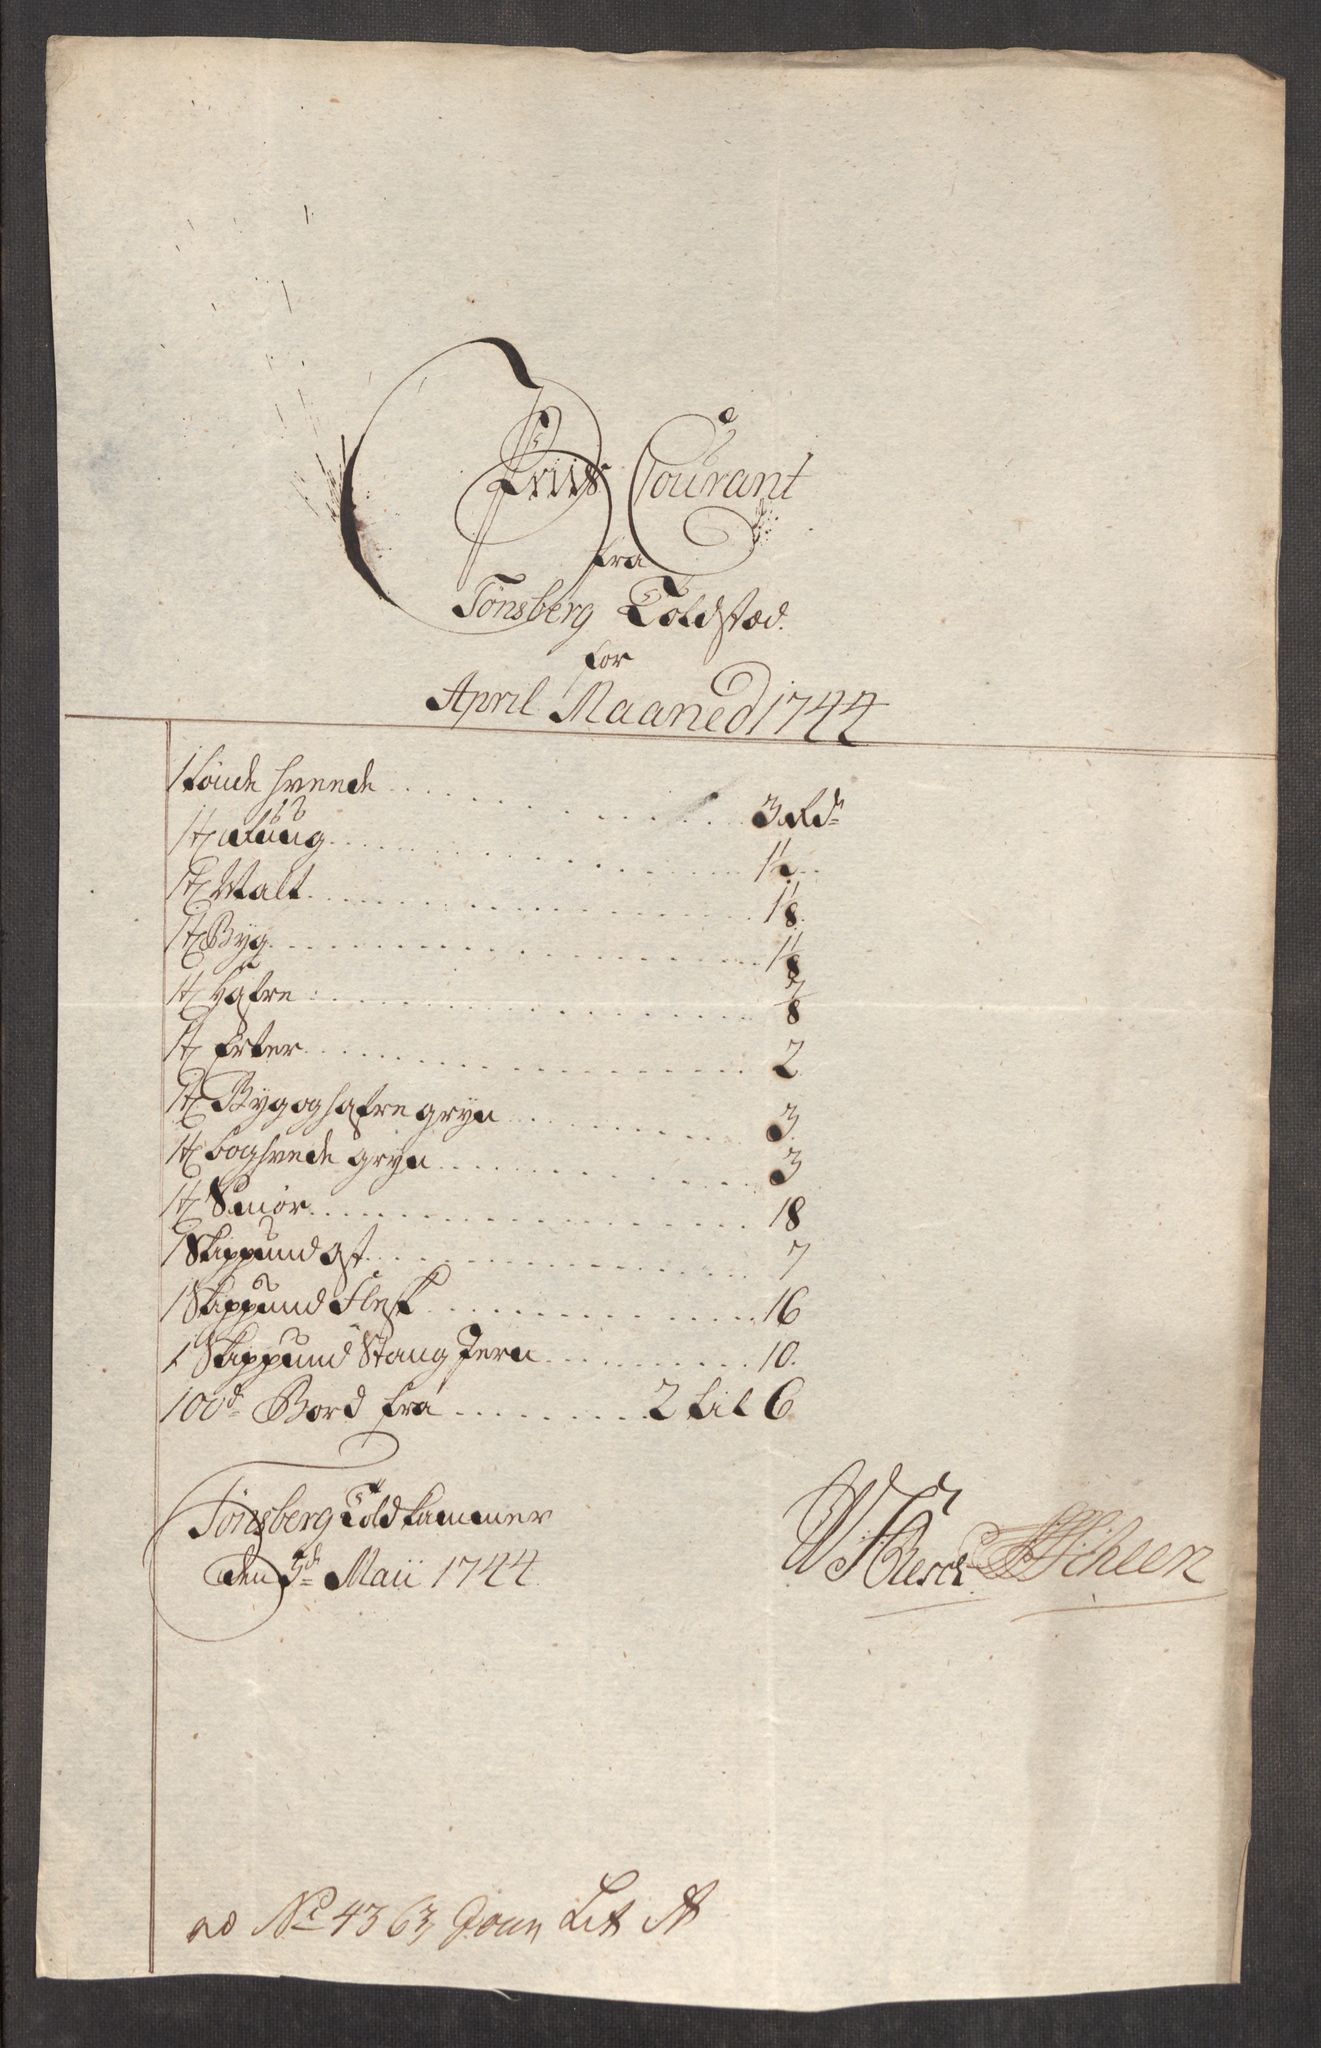 Priis Courant
fra
Tønsberg Toldstæd.
for
April Maaned 1744
1 tønde hveede 3 Rdr
1 tr Ruug 1 1/2
1 tr Malt 1 1/8
1 tr Byg 1 1/8
1 tr hafre 7/8
1 tr Erter 2
1 tr Byg og hafre gryn 3
1 tr boghvede gryn 3
1 tr Smør 18
1 Skippund Ost 7
1 Skippund Flesk 16
1 Skippund Stang Jern 10.
100d Bord fra 2 til 6
Tønsberg Told kammer
den 3d Maii 1744
ad No 4363 Joun Lit A